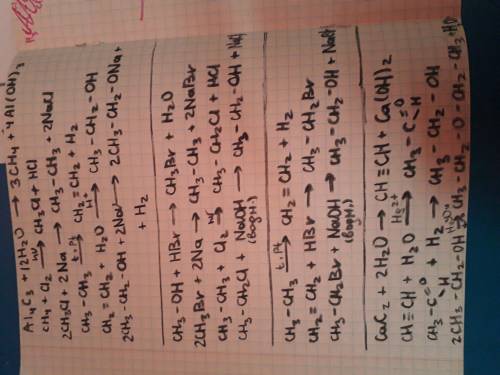 Al₄C₃ + 12H₂O → 3CH₄ + 4Al(OH)₃
CH₄ + Cl₂ →hν CH₃Cl + HCl
2CH₃Cl + 2Na → CH₃-CH₃ + 2NaCl
CH₃-CH₃ →t, Pt CH₂=CH₂ + H₂
CH₂=CH₂ + H₂O →H⁺ CH₃-CH₂-OH
2CH₃-CH₂-OH + 2Na → 2CH₃-CH₂-ONa +
+ H₂
CH₃-OH + HBr → CH₃Br + H₂O
2CH₃Br + 2Na → CH₃-CH₃ + 2NaBr
CH₃-CH₃ + Cl₂ →hν CH₃-CH₂Cl + HCl
CH₃-CH₂Cl + NaOH (водн.) → CH₃-CH₂-OH + NaCl
CH₃-CH₃ →t, Pt CH₂=CH₂ + H₂
CH₂=CH₂ + HBr → CH₃-CH₂Br
CH₃-CH₂Br + NaOH (водн.) → CH₃-CH₂-OH +
CaC₂ + 2H₂O → CH≡CH + Ca(OH)₂
CH≡CH + H₂O →Hg²⁺ CH₃-C=O H
CH₃-C=O H + H₂ → CH₃-CH₂-OH
2CH₃-CH₂-OH →H₂SO₄ CH₃-CH₂-O-CH₂-CH₃ + H₂O